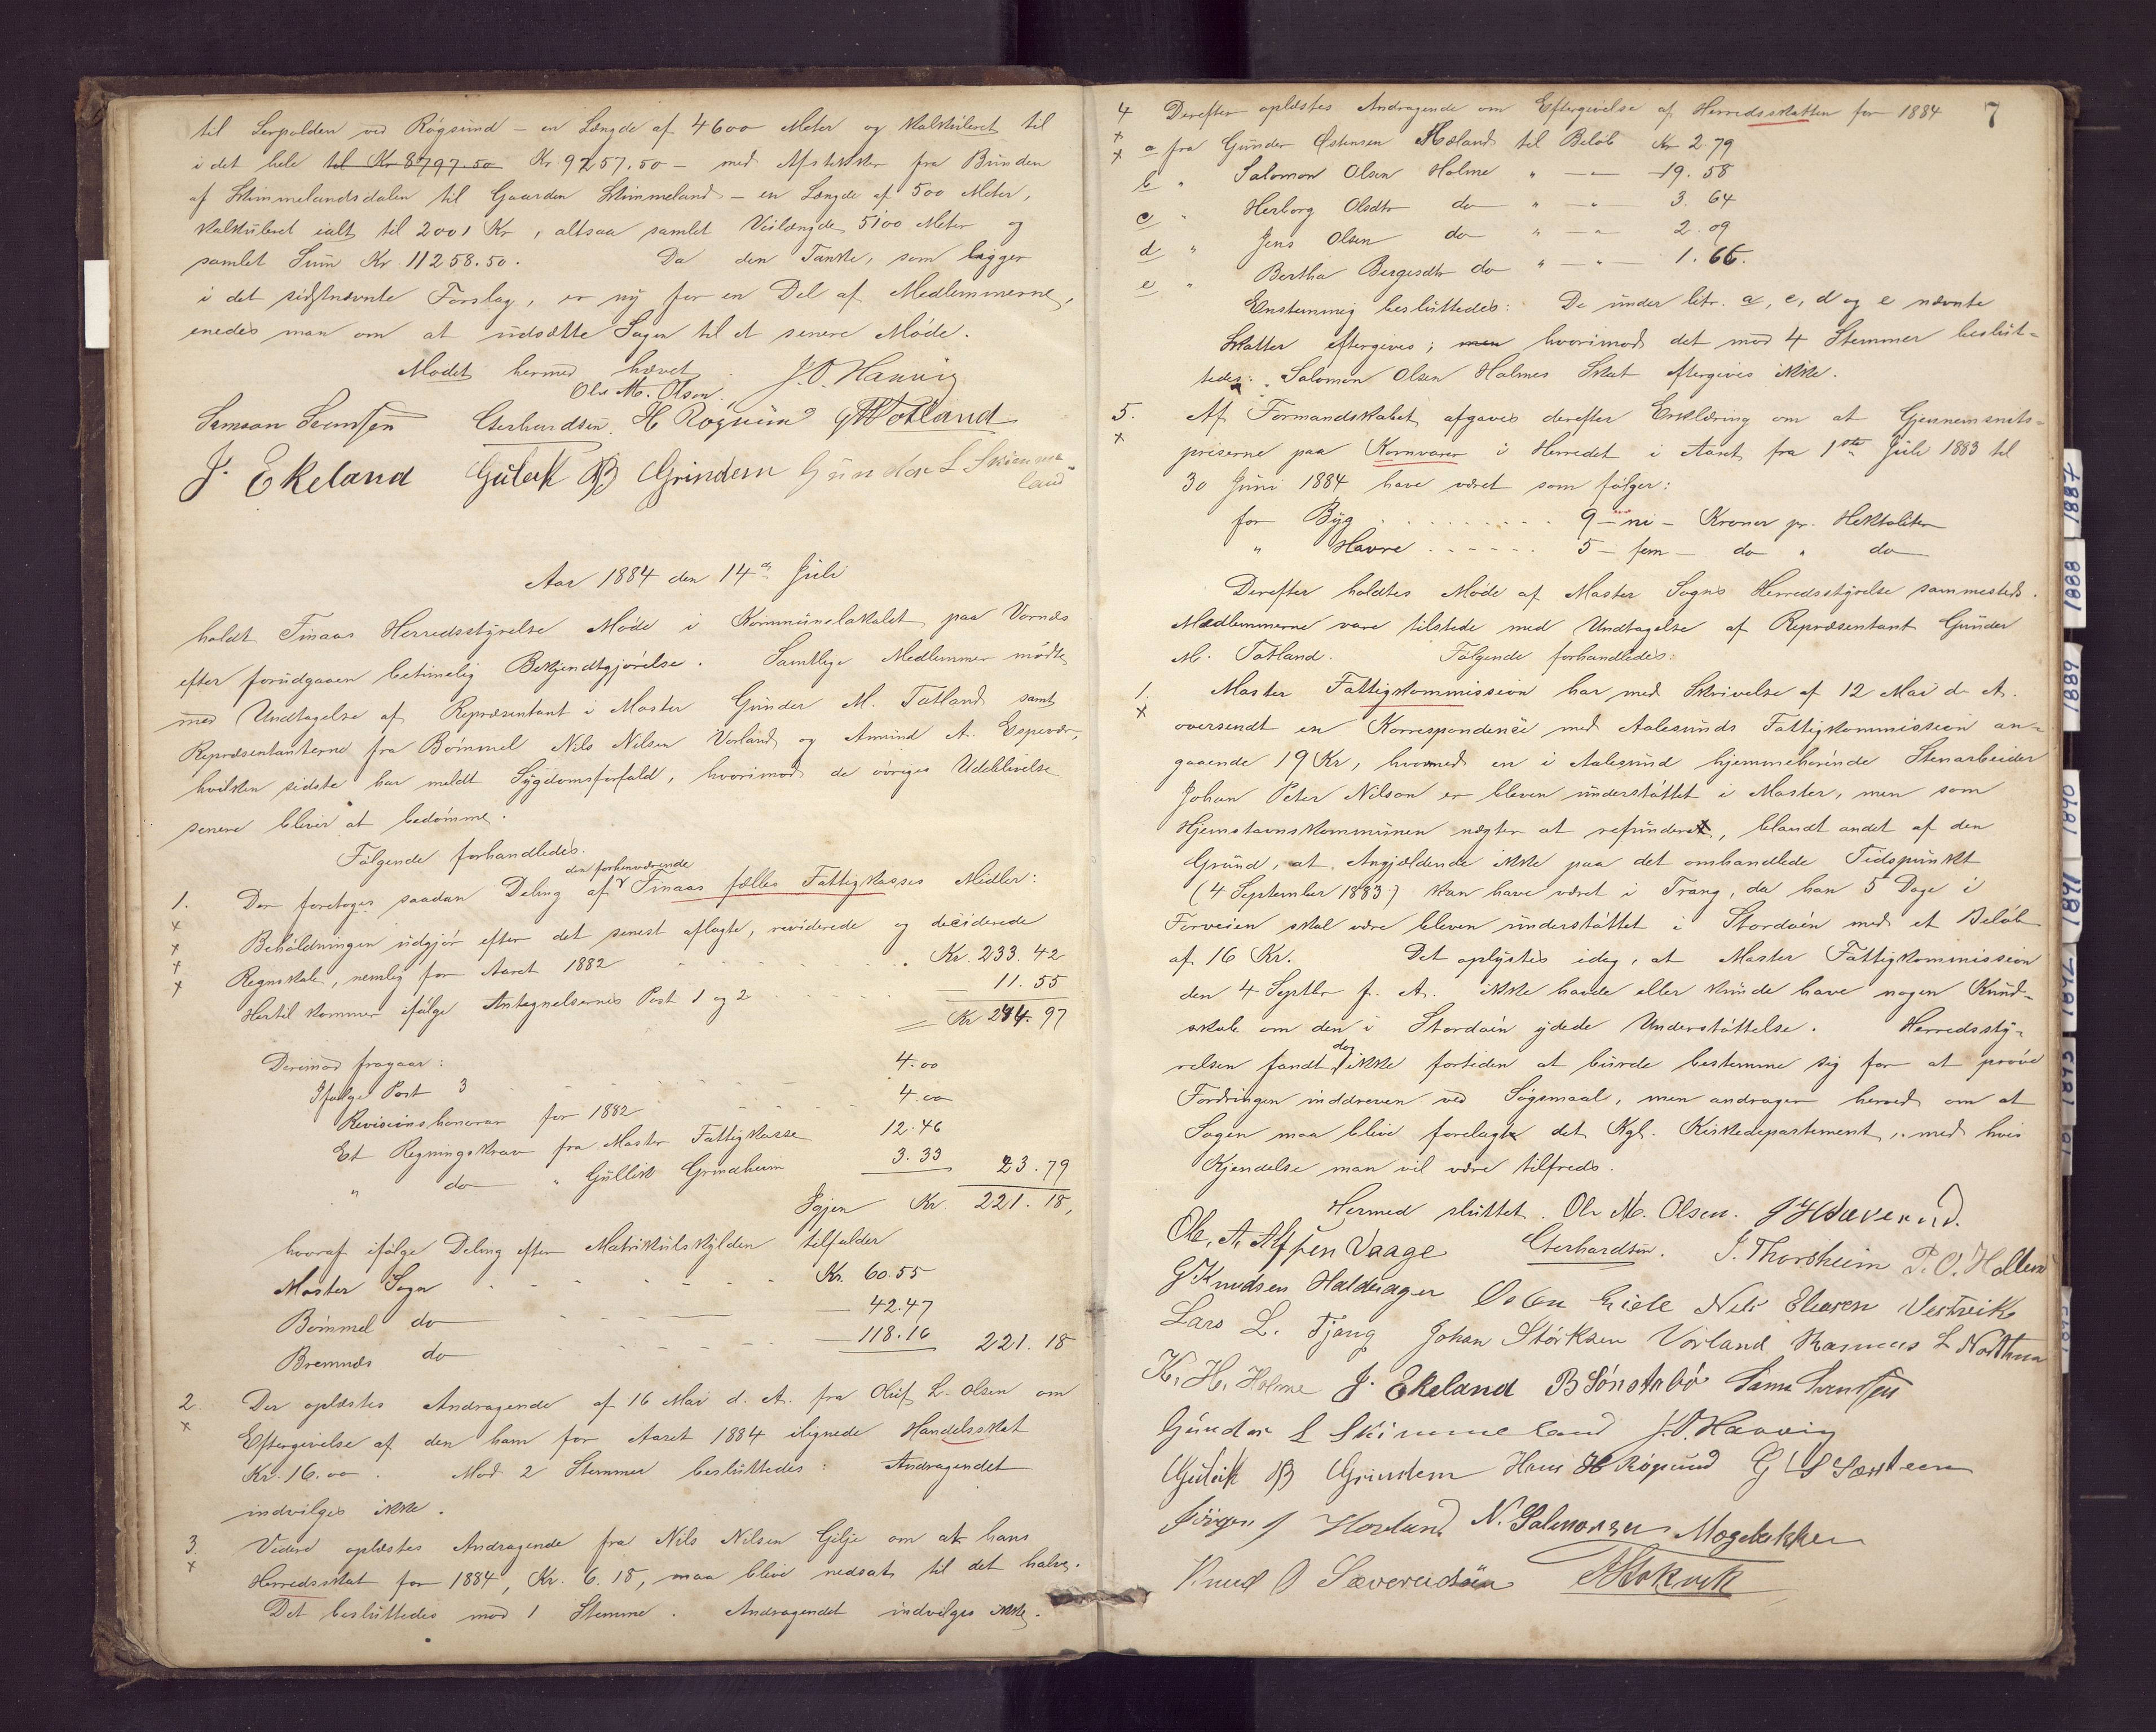 til Serpolden ved Røgsund - en Længde af 4600 Meter og kalkuleret til
i det hele til Kr 8797.50 Kr 9257,50 - med Afstikker fra Bunden
af Skimmelandsdalen til Gaarden Skimmeland - en Længde af 500 Meter,
kalkuleret ialt til 2001 Kr, altsaa samlet Veilængde 5100 Meter og
samlet Sum Kr. 11258.50. Da den Tanke, som ligger
i det sidstnævnte Forslag, er ny for en Del af Medlemmerne,
enedes man om at udsætte Sagen til et senere Møde.
Mødet hermed hævet.
Ole M. Olsen. J. O. Hanvig
Samson Gerhardsen. H Røgsund G M Totland
J. Ekeland Guleik B Grindem Gunder L Skimme
land
Aar 1884 den 14de Juli
holdt Finaas Herredsstyrelse Møde i Kommunelokalet paa Vornæs
efter forudgaaen betimelig Bekjendtgjørelse. Samtlige Medlemmer mødte
med Undtagelse af Repræsentant i Moster Gunder M. Totland samt
Repræsentanterne fra Bømmel Nils Nilsen Vorland og Amund A. Espevær,
hvilken sidste har meldt Sygdomsforfald, hvorimod de øvriges Udeblivelse
senere bliver at bedømme.
Følgende forhandledes.
den forhenværende
1. Der foretoges saadan Deling af Finaas fælles Fattigkasses Midler:
Beholdningen udgjør efter det senest aflagte, reviderede og deciderede
Regnskab, nemlig for Aaret 1882 . . . . Kr. 233.42
Hertil kommer ifølge Antegnelsernes Post 1 og 2 . . . 11.55
Kr 244.97
Derimod fragaar:
Ifølge Post 3 . . . 4.00
Revisionshonorar for 1882 . . . 4.00
Et Regningskrav fra Moster Fattigkasse 12.46
" do " Gullik Grindheim 3.33 23.79
Igjen Kr. 221.18,
hvoraf ifølge Deling efter Matrikulskylden tilfalder
Moster Sogn . . . . Kr. 60.55
Bømmel do . . . 42.47
Bremnæs do . . . 118.16 221.18
2. Der oplæstes Andragende af 16 Mai d. A. fra Oluf L. Olsen om
x Eftergivelse af den ham for Aaret 1884 ilignede Handelsskat
Kr. 16.00. Mod 2 Stemmer besluttedes: Andragendet
indvilges ikke.
3. Videre oplæstes Andragende fra Nils Nilsen Gilje om at hans
x Herredsskat for 1884, Kr. 6.18, maa blive nedsat til det halve.
Det besluttedes mod 1 Stemme. Andragendet indvilges ikke.
7
4 Derefter oplæstes Andragende om Eftergivelse af Herredsskatten for 1884
a fra Gunder Østensen Hæland til Beløb Kr 2.79
b " Salomon Olsen Holme " - " - 19.58
c " Herborg Olsdtr do " - " - 3.64
d " Jens Olsen do " - " - 2.09
e " Bertha Bergesdtr do " - " - 1.66.
Enstemmig besluttedes: De under litr. a, c, d og e nævnte
Skatter eftergives; men hvorimod det mod 4 Stemmer beslut-
tedes: Salomon Olsen Holmes Skat eftergives ikke.
5. Af Formandskabet afgaves derefter Erklæring om at Gjennemsnits-
x priserne paa Kornvarer i Herredet i Aaret fra 1ste Juli 1883 til
30 Juni 1884 have været som følger:
for Byg . . . . . 9 - ni - Kroner pr. Hektoliter
" Havre . . . . . 5 - fem - do " do
Derefter holdtes Møde af Moster Sogns Herredsstyrelse sammesteds.
Medlemmerne vare tilstede med Undtagelse af Repræsentant Gunder
M. Totland. Følgende forhandledes:
1. Moster Fattigkommission har med Skrivelse af 12 Mai d. A.
x oversendt en Korrespondence med Aalesunds Fattigkommission an-
gaaende 19 Kr, hvormed en i Aalesund hjemmehørende Stenarbeider
Johan Peter Nilson er bleven understøttet i Moster, men som
Hjemstavnskommunen nægter at refundere, blandt andet af den
Grund, at Angjældende ikke paa det omhandlede Tidspunkt
(4 September 1883) kan have været i Trang, da han 5 Dage i
Forveien skal være bleven understøttet i Stordøen med et Beløb
af 16 Kr. Det oplystes idag, at Moster Fattigkommission
den 4 Septbr f. A. ikke havde eller kunde have nogen Kund-
skab om den i Stordøen ydede Understøttelse. Herredssty-
dog
relsen fandt ikke fortiden at burde bestemme sig for at prøve
Fordringen inddreven ved Søgsmaal, men andrager herved om at
Sagen maa blive forelagt det Kgl. Kirkedepartement, med hvis
Kjendelse man vil være tilfreds.
Hermed sluttet. Ole M. Olsen.
Ole. A. Alfsen Vaage Gerhardsen. J. Thorsheim P. O. Hollund
G Knudsen Haldorager Nils Eliasen Vestvik
Lars L. Tjong Johan Størksen Vorland Rasmus L Nordtun
K. H. Holme J. Ekeland B Sønstabø
Gunder L Skimmeland J. O. Hanvig
Guleik B Grindem Hans H Røgsund G
Jørgen J Hovland N. Salmonsen Mogebakken
Knud O Sæverudsøen
1887
1888
1889
1890
1891
1892
1893